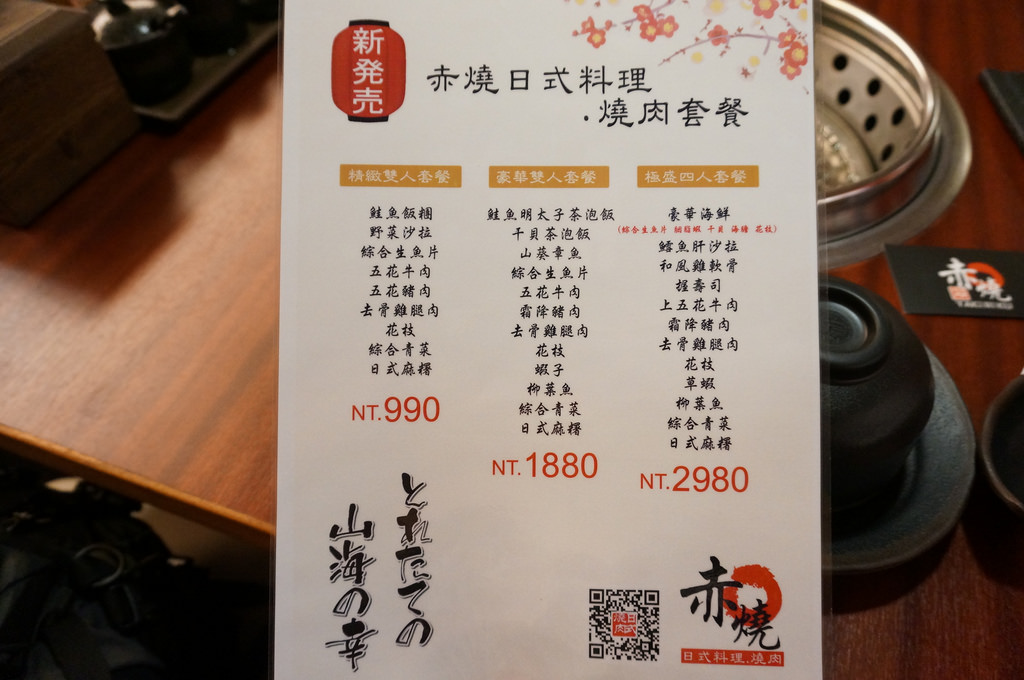 新発売
赤燒日式料理
·燒肉套餐
精緻雙人套餐
鮭魚飯糰
野菜沙拉
綜合生魚片
五花牛肉
五花豬肉
去骨雞腿肉
花枝
綜合青菜
日式麻糬
NT.990
豪華雙人套餐
鮭魚明太子茶泡飯
干貝茶泡飯
山葵章魚
綜合生魚片
五花牛肉
霜降豬肉
去骨雞腿肉
花枝
蝦子
柳葉魚
綜合青菜
日式麻糬
NT.1880
極盛四人套餐
豪華海鮮
(綜合生魚片 胭脂蝦 干貝 海膽 花枝)
鱈魚肝沙拉
和風雞軟骨
握壽司
上五花牛肉
霜降豬肉
去骨雞腿肉
花枝
草蝦
柳葉魚
綜合青菜
日式麻糬
NT.2980
とれたての
山海の幸
日式燒肉
赤燒
日式料理.燒肉
赤燒